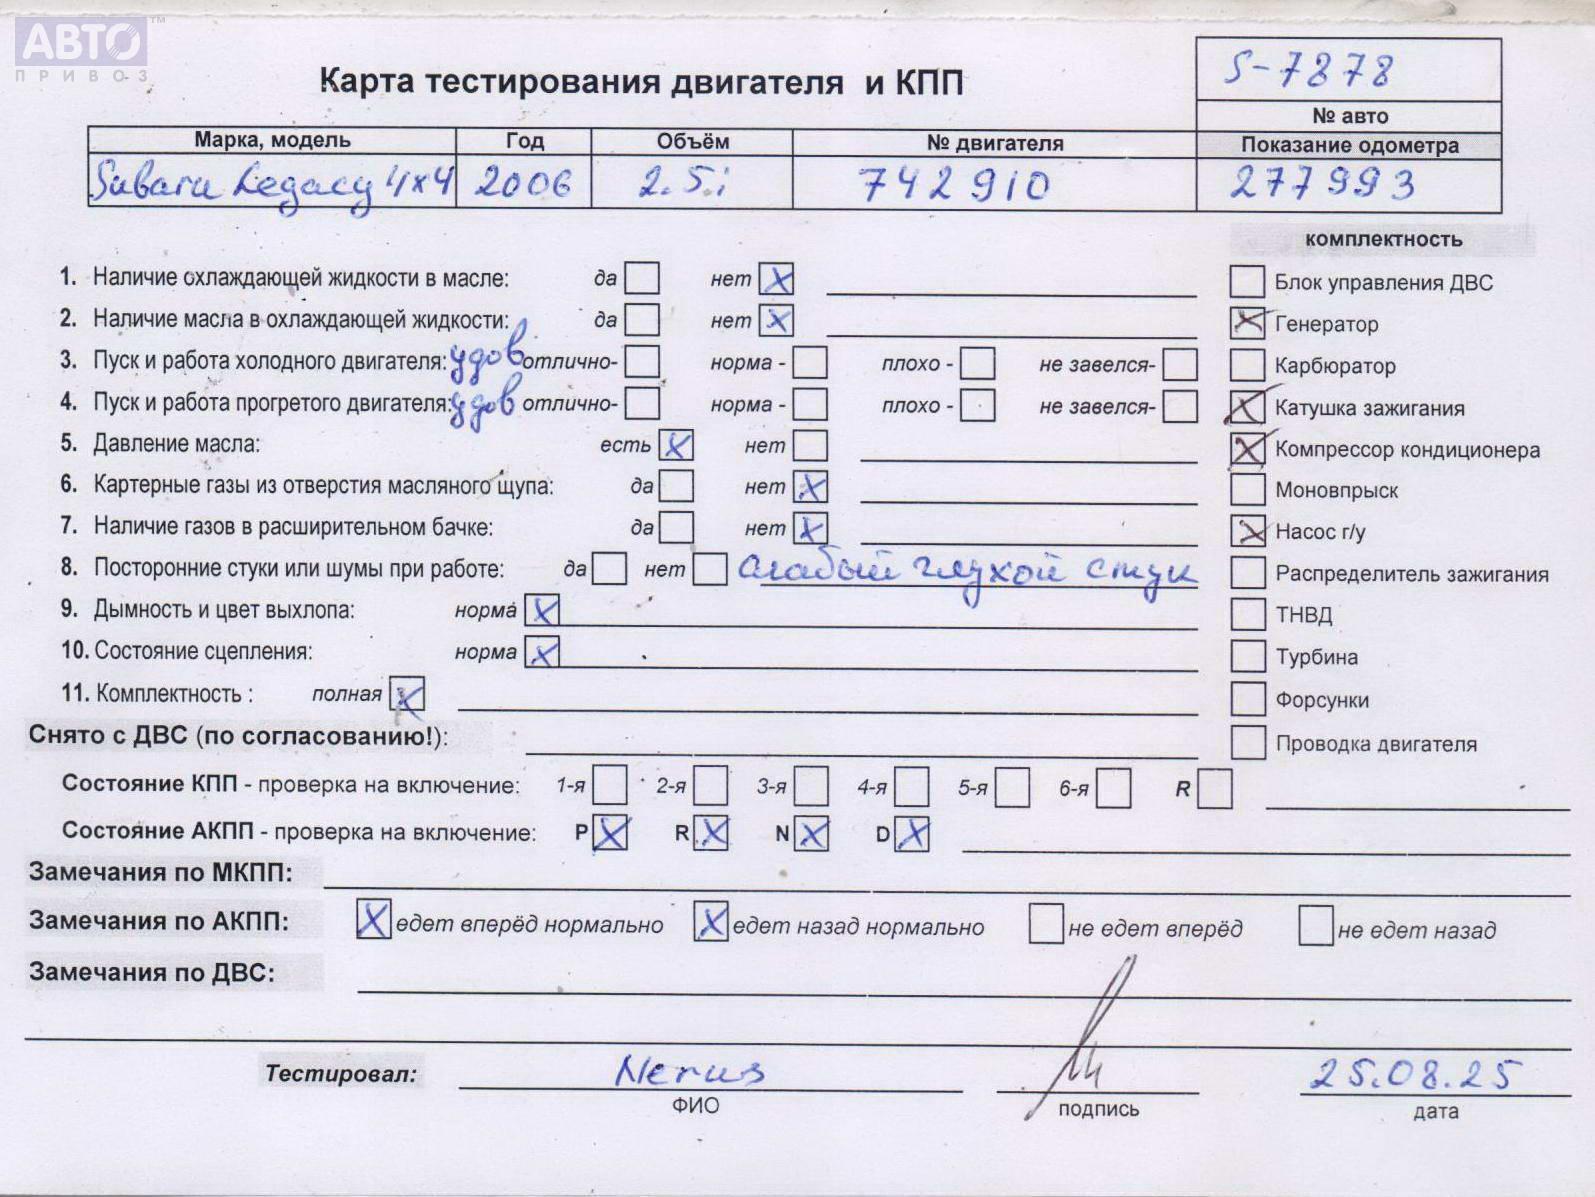 АВТО™
ПРИВОЗ
S-7878
Карта тестирования двигателя и КПП
№ авто
Марка, модель Год Объём № двигателя Показание одометра
Subaru Legacy 4x4 2006 2.5i 742910 277993
комплектность
1. Наличие охлаждающей жидкости в масле: да нет X
Блок управления ДВС
2. Наличие масла в охлаждающей жидкости: да нет X
X Генератор
3. Пуск и работа холодного двигателя: удов отлично- норма - плохо - не завелся-
Карбюратор
4. Пуск и работа прогретого двигателя: удов отлично- норма - плохо - не завелся-
X Катушка зажигания
5. Давление масла: есть X нет
X Компрессор кондиционера
6. Картерные газы из отверстия масляного щупа: да нет X
Моновпрыск
7. Наличие газов в расширительном бачке: да нет X
X Насос г/у
8. Посторонние стуки или шумы при работе: да нет слабый глухой стук
Распределитель зажигания
9. Дымность и цвет выхлопа: норма X
ТНВД
10. Состояние сцепления: норма X
Турбина
11. Комплектность : полная X
Форсунки
Снято с ДВС (по согласованию!):
Проводка двигателя
Состояние КПП - проверка на включение: 1-я 2-я 3-я 4-я 5-я 6-я R
Состояние АКПП - проверка на включение: P X R X N X D X
Замечания по МКПП:
Замечания по АКПП: X едет вперёд нормально X едет назад нормально не едет вперёд не едет назад
Замечания по ДВС:
Тестировал: 25.08.25
ФИО подпись дата